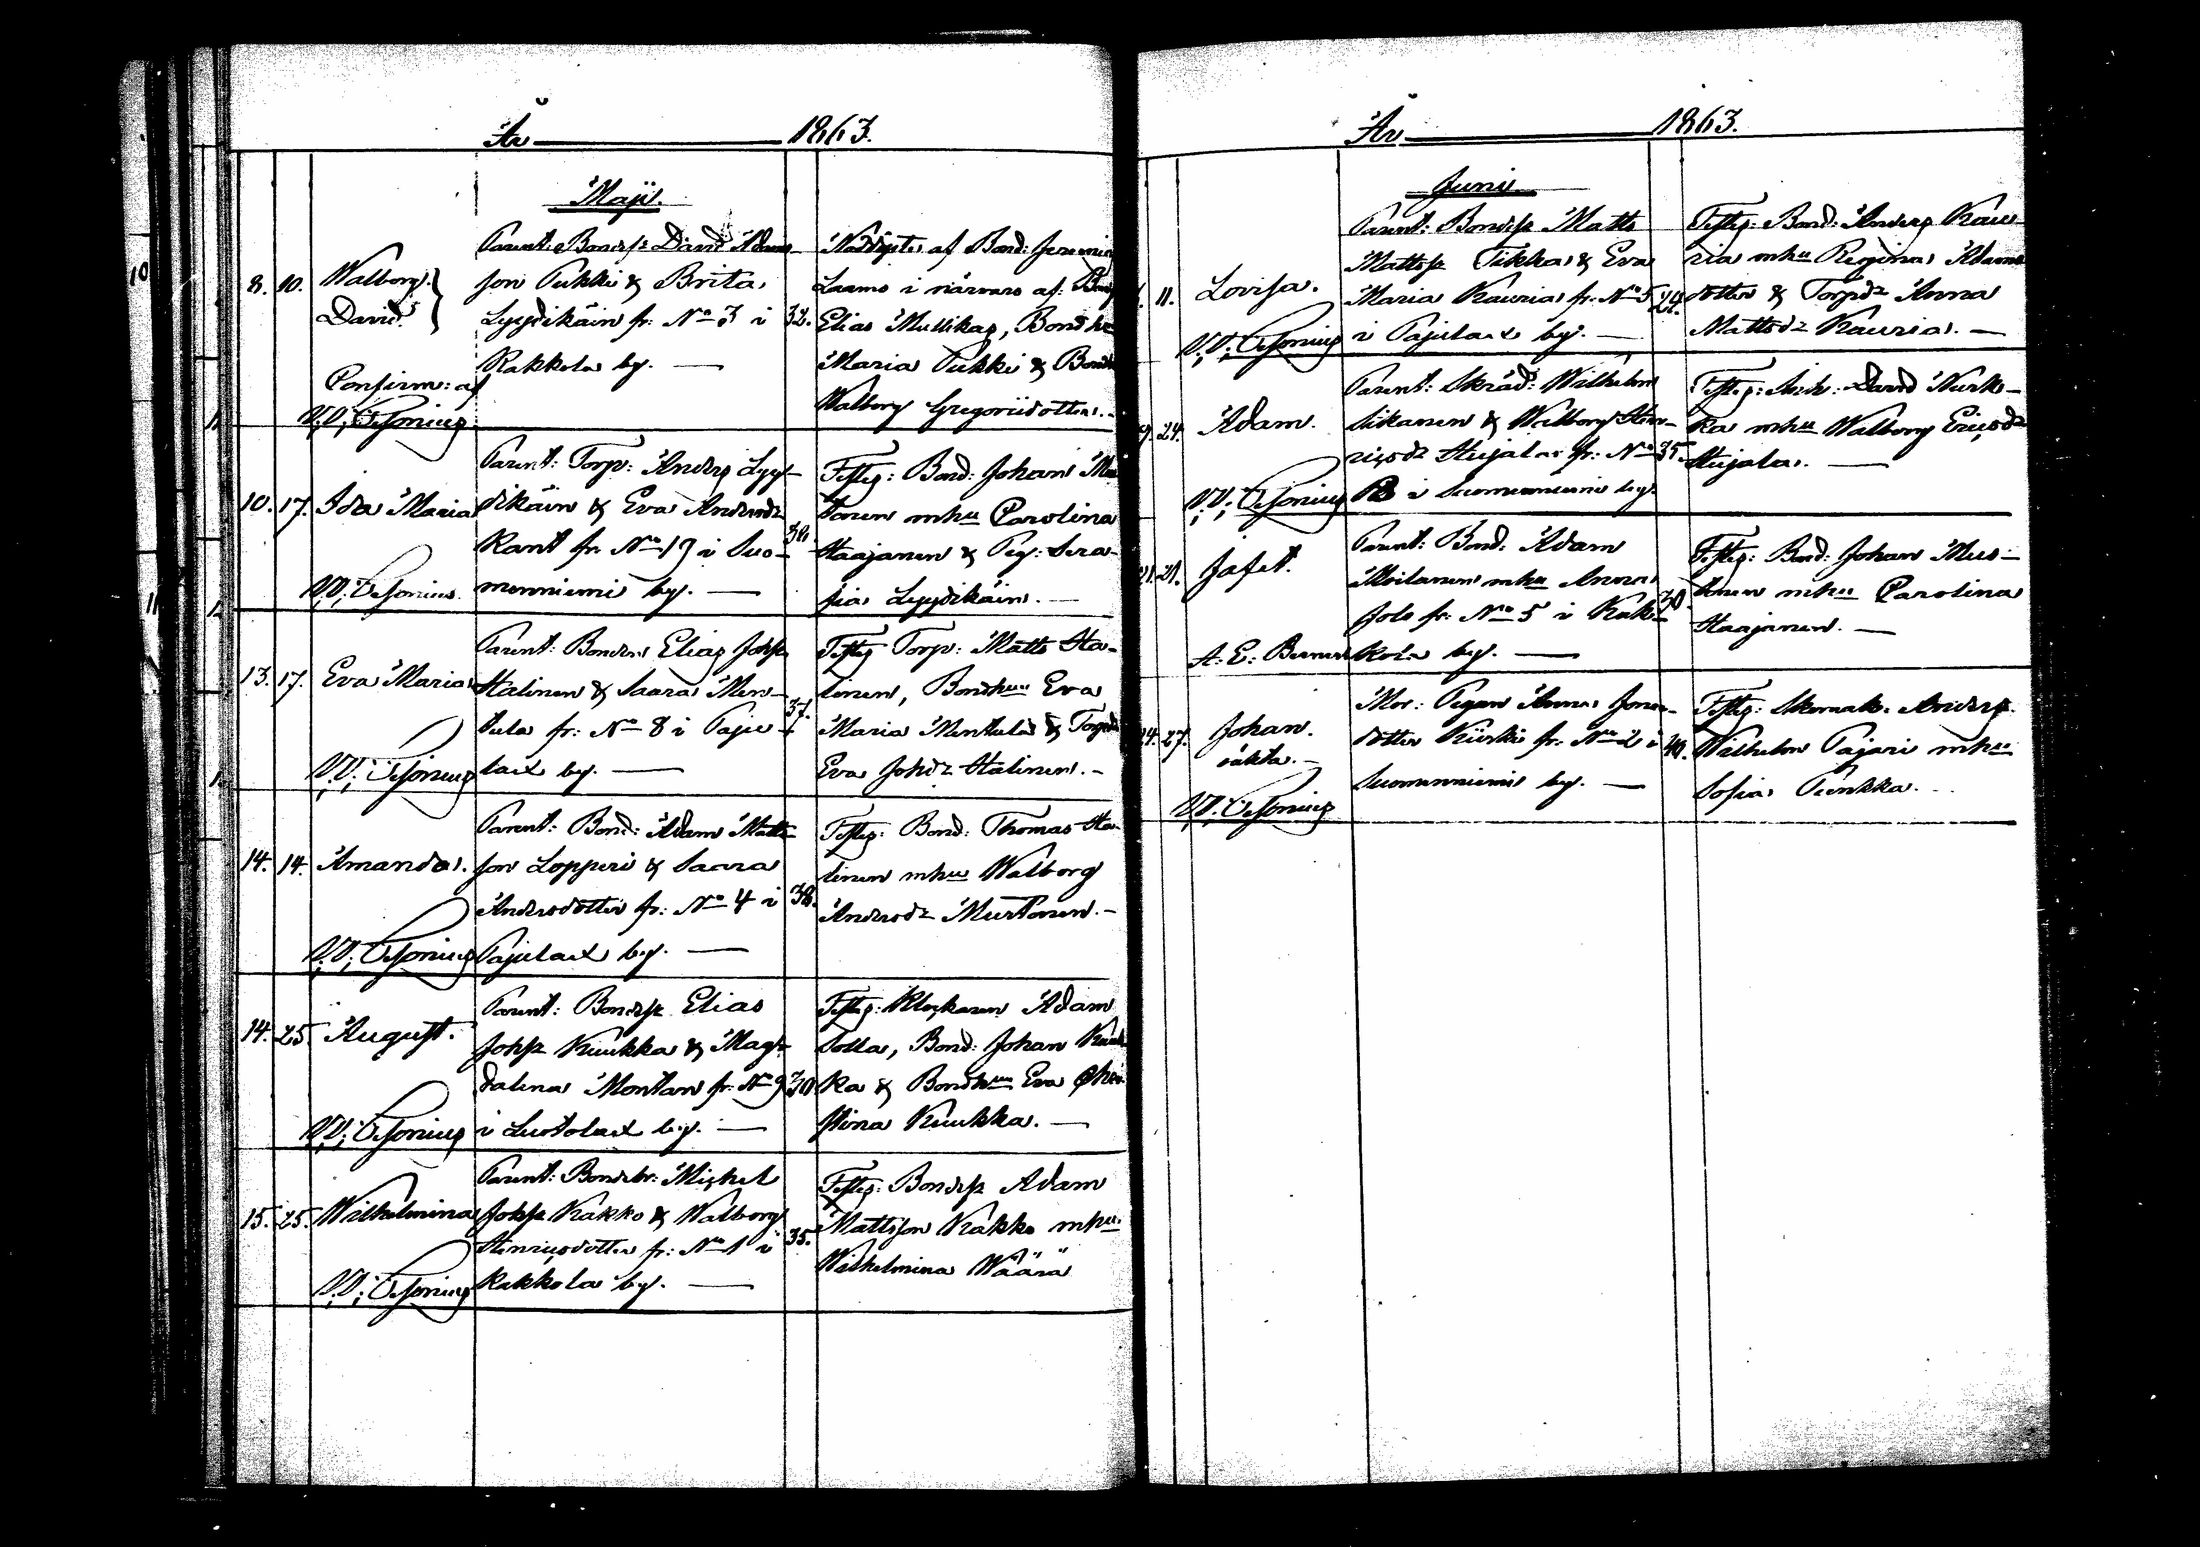 År 1863.
Maji.
8. 10. Walborg.
David.
Confirm: af
Parent: Bondes: David Adams-
son Pukki & Brita
Lyydikäin fr: No 3 i
Rakkola by. —
32.
Nöddöpte af Bond: Jeremias
Laamo i närvaro af:
Elias Mullikas, Bondhu
Maria Pukki & Bond
Walborg Gregoriidotter. -
10. 17. Ida Maria
Parent: Torp: Anders Lyy-
dikäin & Eva Andersdr
Kant fr No 17 i Suo-
menniemi by. —
38.
Testes: Bond: Johan Mus-
tonen mhu Carolina
Haajanen & Pig: Sera-
fia Lyydikäin. —
13. 17. Eva Maria
Parent: Bonden Elias Johss
Halinen & Saara Men-
tula fr: No 8 i Paju-
laxt by. —
37.
Testes Torp: Matts Ha-
linen, Bondhuu Eva
Maria Mentula & Torpdr
Eva Johdr Halinen. -
14. 14. Amanda.
Parent: Bond: Adam Matts-
son Lopperi & Saara
Andersdotter fr: No 4 i
Pajulaxt by. —
38.
Testes: Bond: Thomas Ha-
linen mhu Walborg
Andersdr Murtonen. -
14. 25. August.
Parent: Bondess Elias
Johss Kuukka & Mag-
dalena Montan fr: No 9
i Luotolaxt by. —
30.
Testes: Klockaren Adam
Solla, Bond: Johan Kuuk-
ka & Bondhuu Eva Chri-
stina Kuukka. —
15. 25. Wilhelmina
Parent: Bondebr: Michel
Johss Kakko & Walborg
Henricsdotter fr: No 1 i
Rakkola by. —
35.
Testes: Bondess Adam
Mattsson Kakko mhu
Wilhelmina Wäärä
År 1863.
Juni
11. Lovisa.
Parent: Bondess Matts
Mattss Tikka & Eva
Maria Kauria fr: No 5
i Pajulaxt by. —
24.
Testes: Bond: Anders Kau-
ria mhu Regina Adams-
dotter & Torpdr Anna
Mattsdr Kauria. —
24. Adam.
Parent: Skräd: Wilhelm
Sikanen & Walborg Hen-
ricsdr Heijala fr: No
i Suomenniemi by.
35.
Testes: David Nurk-
ka mhu Walborg Ericsdr
Heijala. —
21. 21. Jafet.
A: E:
Parent: Bond: Adam
Moilanen mhu Anna
Jolo fr: No 5 i Rak-
kola by. —
30.
Testes: Bond: Johan Mus-
tonen mhu Carolina
Haajanen. —
24. 27. Johan.
oäkta. —
Mor: Pigan Anna Jonas-
dotter Kurki fr: No 2 i
Suomenniemi by. —
40.
Testes: Skomak: Anders
Wilhelm Pajari mhu
Sofia Pinkka.